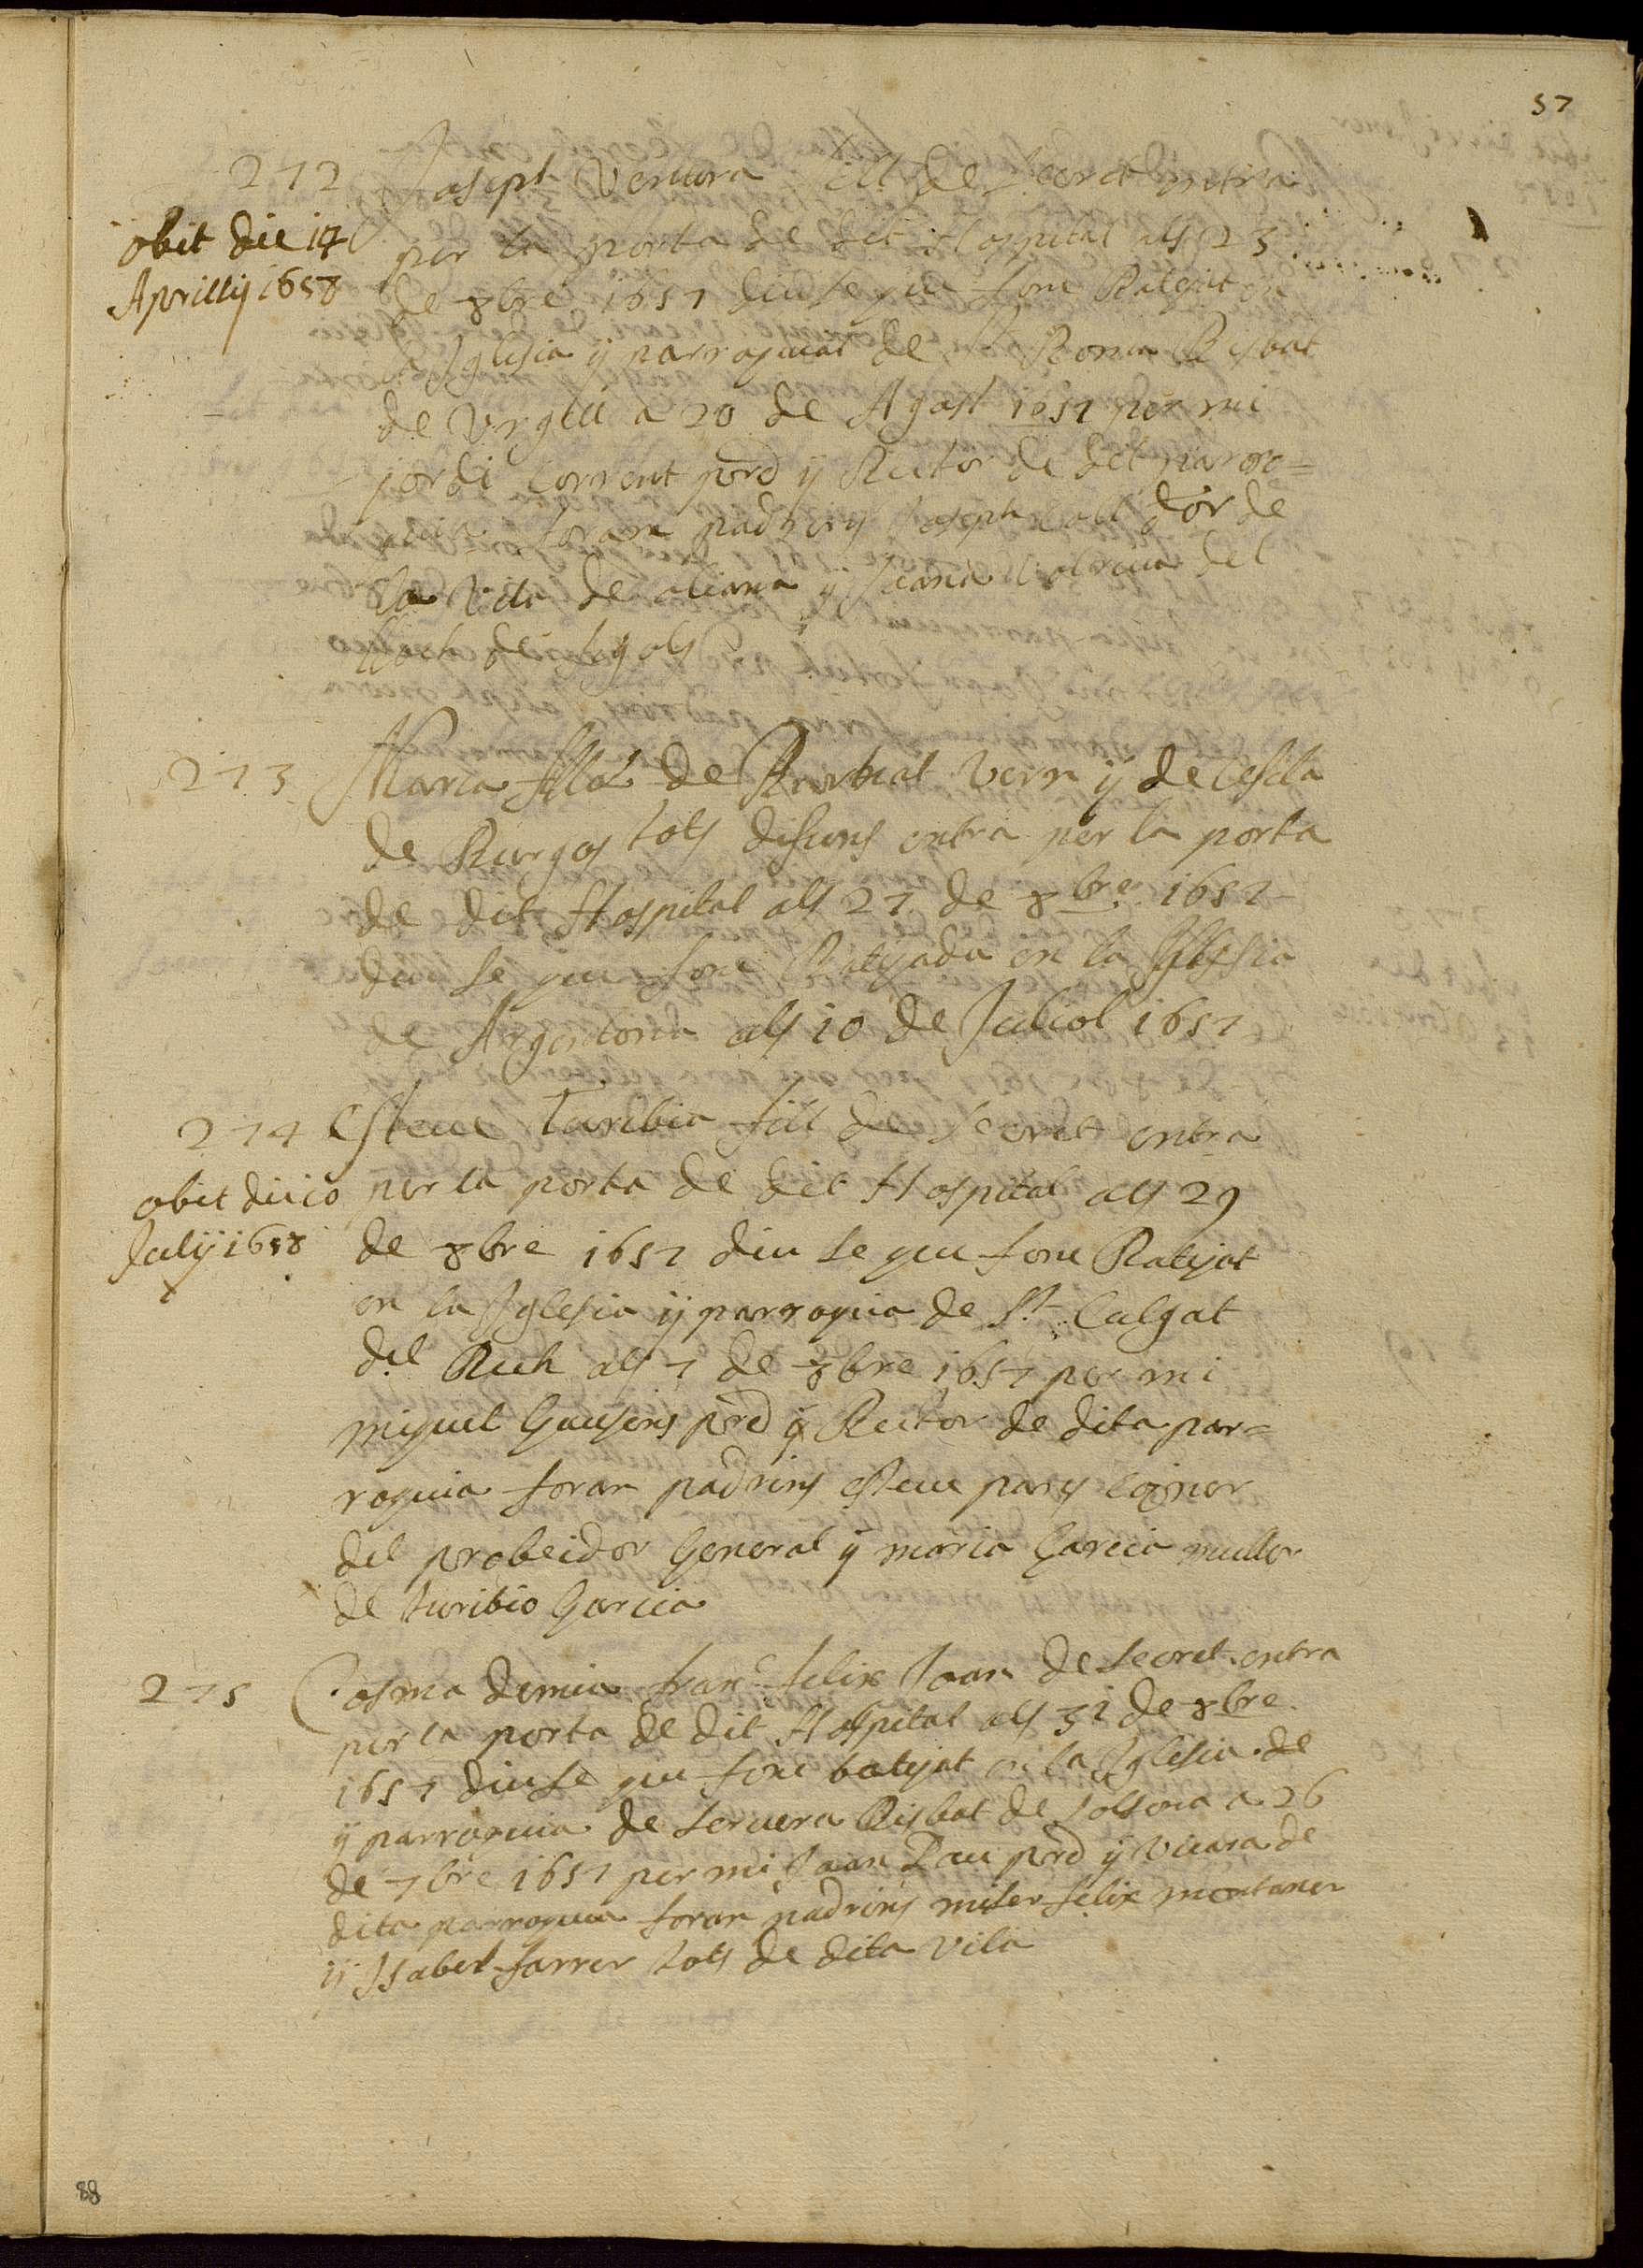 57
272 Joseph Ventura fill de secret entra
obit die 17 per la porta de dit Hospital als 23
Aprillij 1658 de 8bre 1657 diu se que fonc Batejat en
la Iglesia ÿ parroquial de St Roma Bisbat
de Vrgell a 20 de Agost 1657 per mi
jordi Corrent prd ÿ Rector de dit parro=
quia foran padrins Joseph Coll dor de
la Vila de oliana ÿ Joana del
lloch de segols
273 Maria filla de Vern ÿ de Cesilia
de Burgos tots difuns entra per la porta
de dit Hospital als 27 de 8bre 1657
diu se que fonc Batejada en la Iglesia
de Argentona als 10 de Juliol 1657
274 Esteue Turibia fill de secret entra
obit die 10 per la porta de dit Hospital als 29
Julij 1658 de 8bre 1657 diu se que fonc Batejat
en la Iglesia ÿ parroquia de St Culgat
del Rech als 7 de 8bre 1657 per mi
miquel prd ÿ Rector de dita par=
roquia foran padrins esteue parÿs
del probeidor General ÿ maria Garcia muller
de turibio Garcia
275 Cosma demia franc felix Joan de secret entra
per la porta de dit Hospital als 31 de 8bre
1657 diu se que fonc batejat en la Iglesia de
ÿ parroquia de seruera Bisbat de solsona a 26
de 7bre 1657 per mi Joan Pau prd ÿ vicari de
dita parroquia foran padrins miser felix montaner
ÿ Isabel farrer tots de dita vila
88